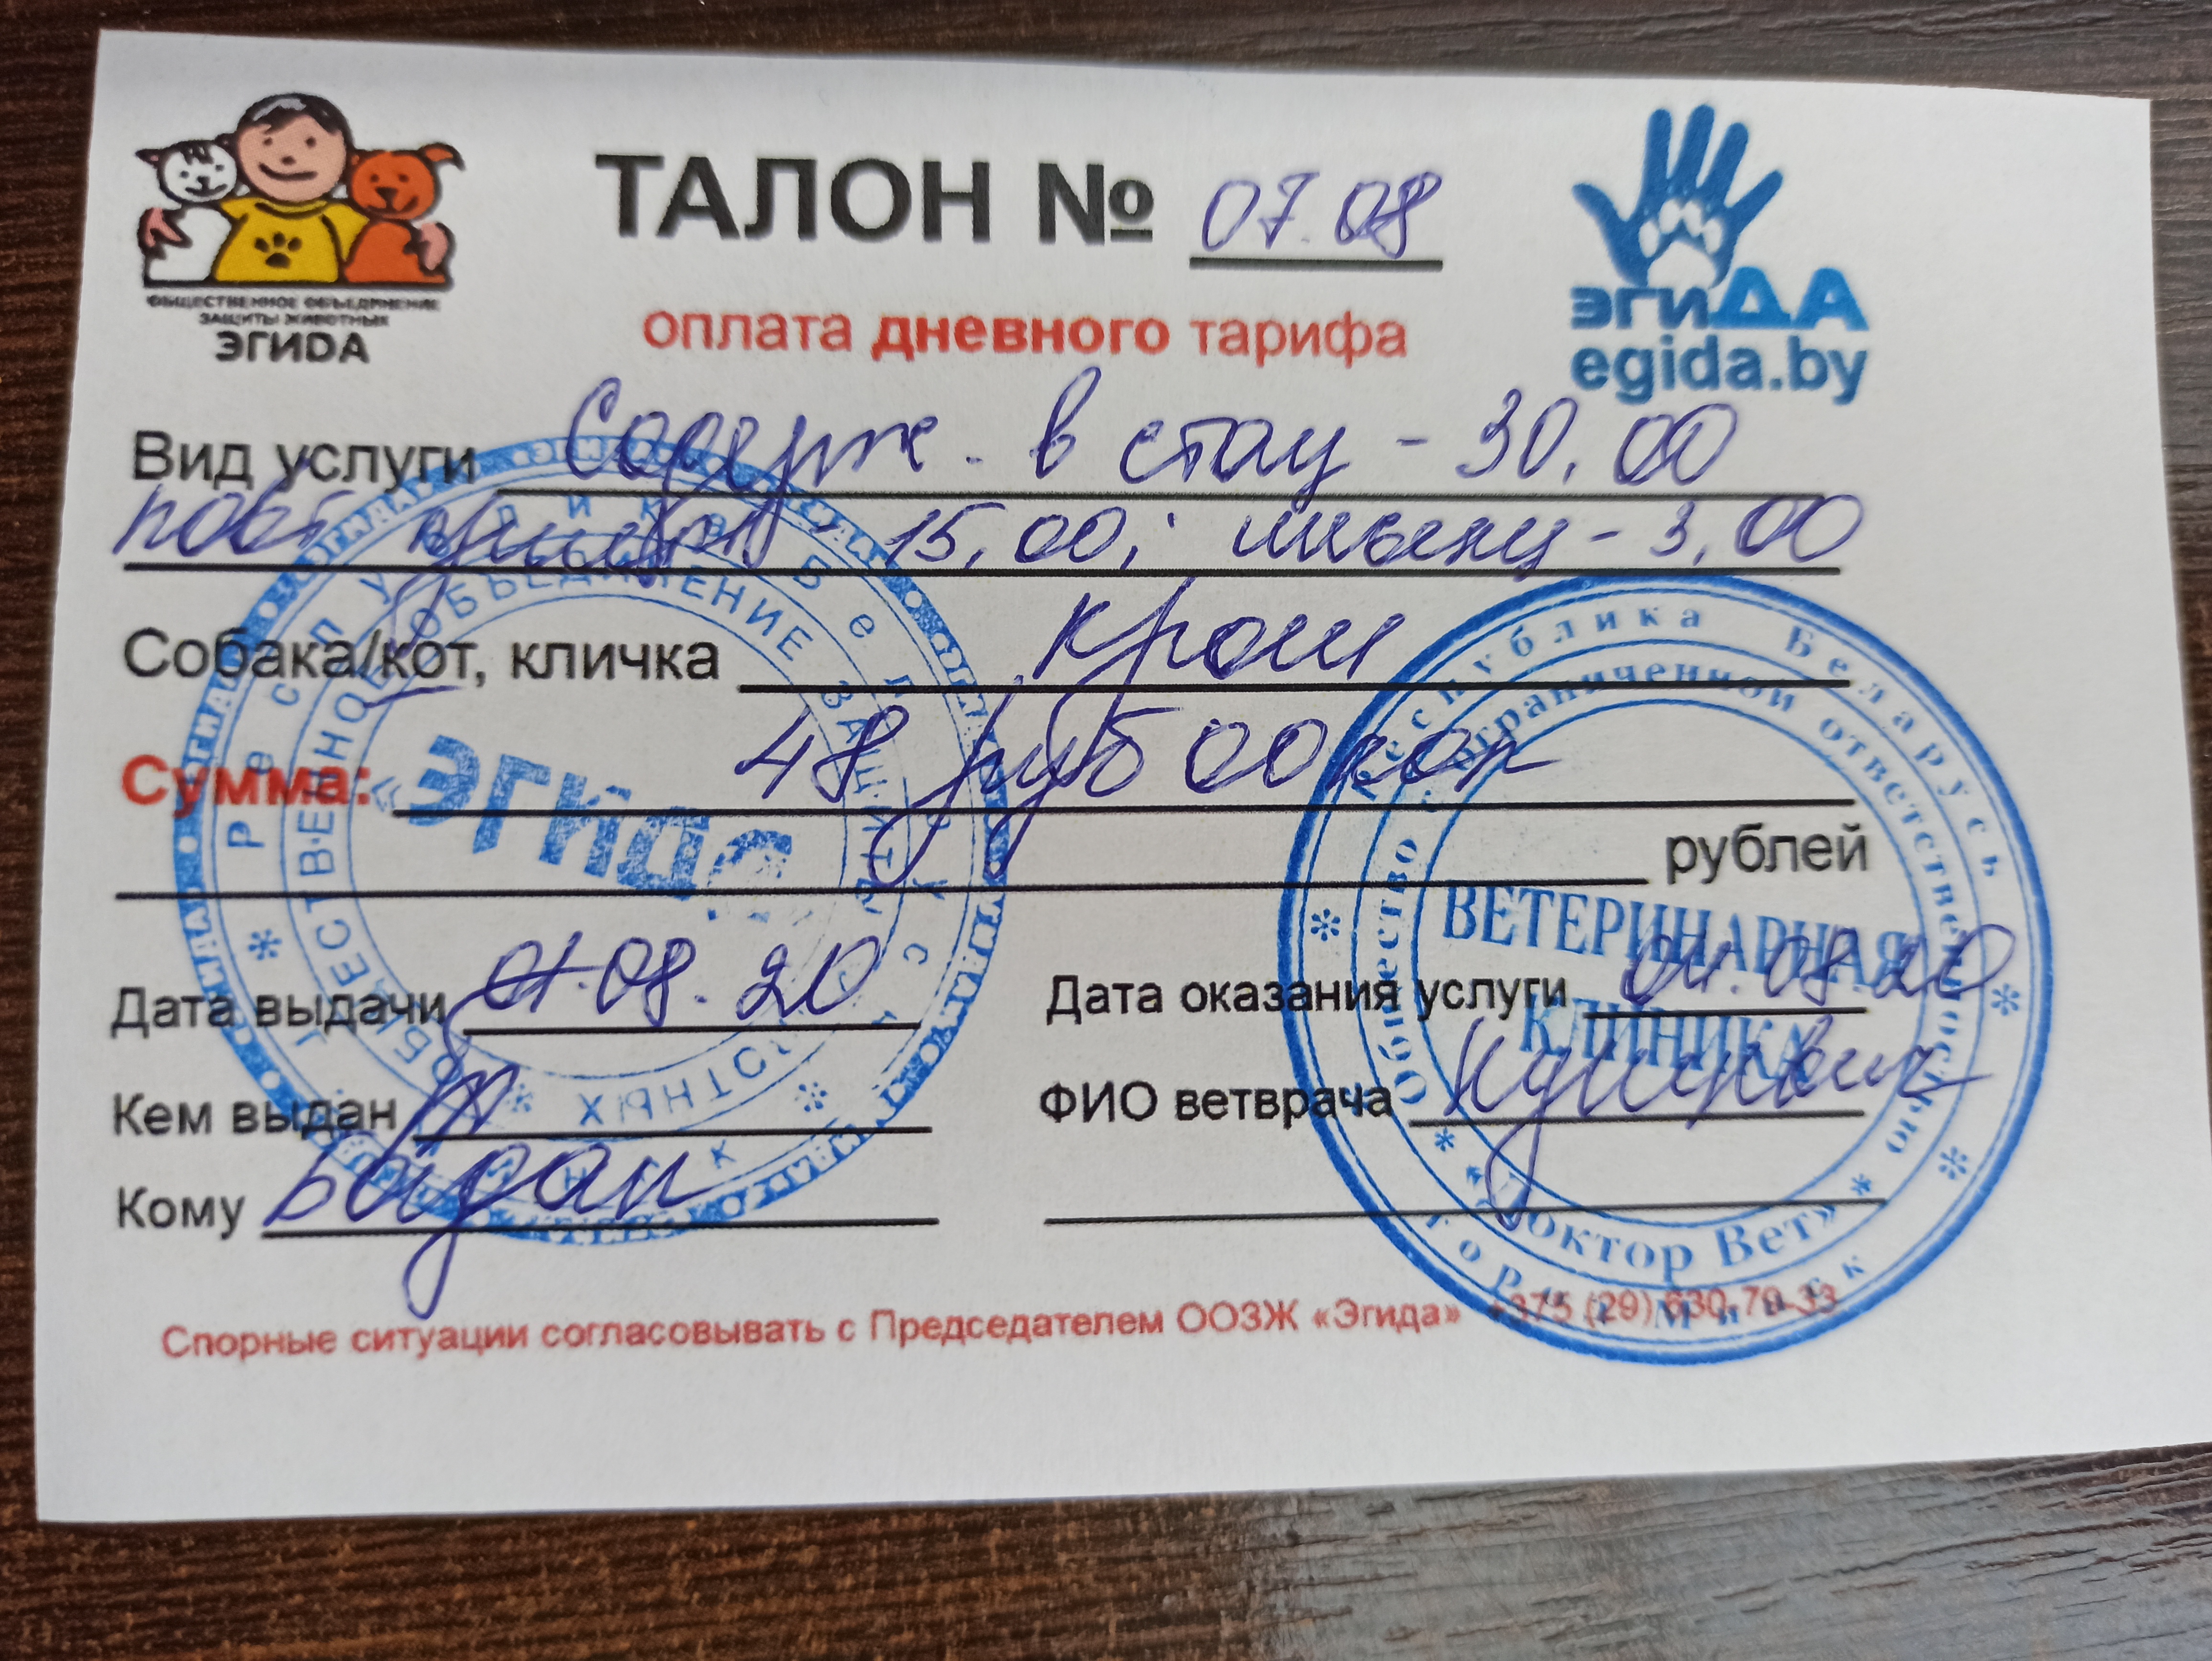 ОБЩЕСТВЕННОЕ ОБЪЕДИНЕНИЕ
ЗАЩИТЫ ЖИВОТНЫХ
ЭГИДА
ТАЛОН № 07.08
оплата дневного тарифа
эгиДА
egida.by
Вид услуги Содерж. в стац - 30,00
повт 15,00; инъекц - 3,00
Собака/кот, кличка Крош
Сумма: 48 руб 00 коп
рублей
Дата выдачи 01.08.20
Кем выдан
Кому
Дата оказания услуги 01.08.20
ФИО ветврача
Спорные ситуации согласовывать с Председателем ООЗЖ «Эгида» +375 (29) 630-79-33
Республика Беларусь
ОБЩЕСТВЕННОЕ ОБЪЕДИНЕНИЕ ЗАЩИТЫ ЖИВОТНЫХ
«ЭГИДА»
Республика Беларусь
Общество с ограниченной ответственностью
ВЕТЕРИНАРНАЯ
КЛИНИКА
«Доктор Вет»
город Минск